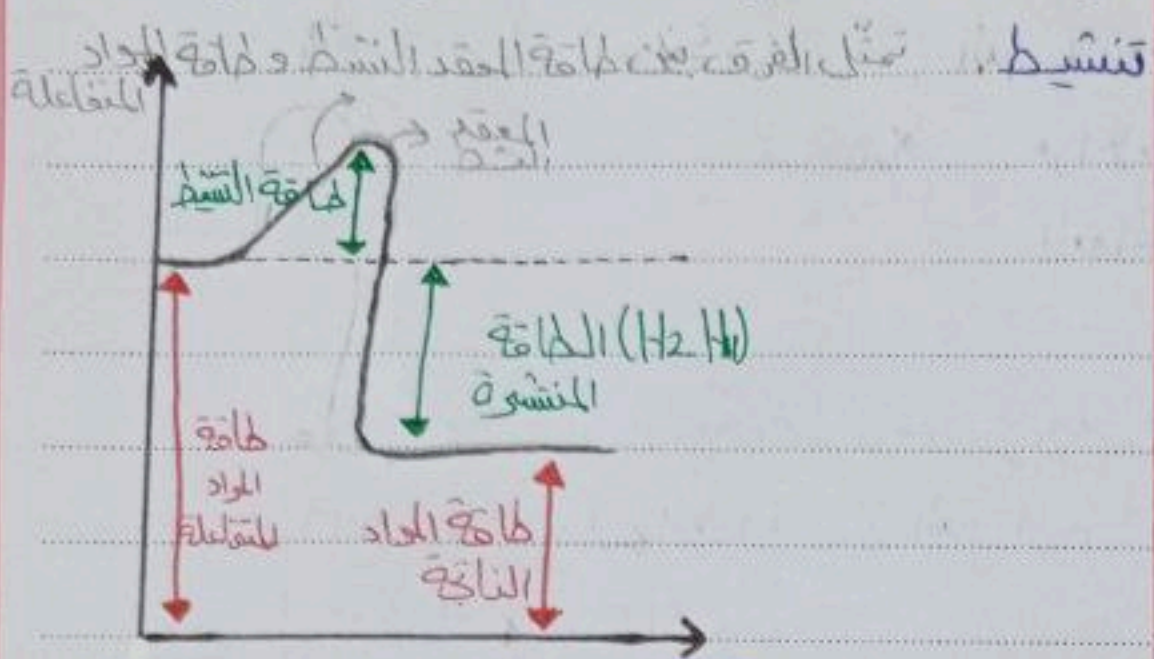 تنشيط. تمثل الفرق بين طاقة المعقد النشط و طاقة المواد
المتفاعلة
المعقد
النشط
طاقة التنشيط
(H2 H1) الطاقة
المنتشرة
طاقة
المواد
المتفاعلة
طاقة المواد
الناتجة